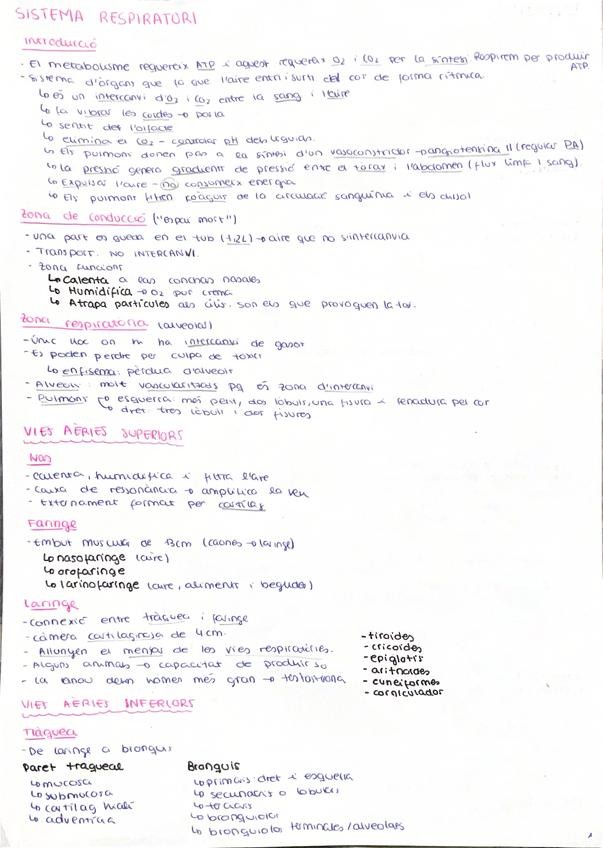 SISTEMA RESPIRATORI
Introducció
- El metabolisme requereix ATP i aquest requereix O2 i CO2 per la síntesi. Respirem per produir ATP.
- Sistema d'òrgans que fa que l'aire entri i surti del cos de forma rítmica
↳ es un intercanvi d'O2 i CO2 entre la sang i l'aire
↳ fa vibrar les cordes → parla
↳ sentit de l'olfacte
↳ elimina el CO2 - controlar pH dels líquids.
↳ Els pulmons donen pas a la síntesi d'un vasoconstrictor → angiotensina II (regular PA)
↳ La pressió genera gradients de pressió entre el tòrax i l'abdomen (flux limf. i sang).
↳ Expulsar l'aire - no consumeix energia
↳ Els pulmons filtren coàguls de la circulació sanguínia i els dissol
Zona de conducció ("espai mort")
- una part es queda en el tub (1,2L) → aire que no s'intercanvia
- Transport. NO INTERCANVI.
- Zona funcions
↳ Calenta a les conchas nasales
↳ Humidifica → O2 pur crema
↳ Atrapa partícules als cilis. són els que provoquen la tos.
Zona respiratoria (alveolar)
- Únic lloc on hi ha intercanvi de gasos
- Es poden perdre per culpa de toxics
↳ enfisema: pèrdua d'alveols
- Alveols: molt vascularitzats pq és zona d'intercanvi
- Pulmons ↳ esquerra: més petit, dos lòbuls, una fisura i senadura pel cor
↳ dret: tres lòbuls i dos fisures
VIES AÈRIES SUPERIORS
Nas
- calenta, humidifica i filtra l'aire
- caixa de ressonància → amplifica la veu
- Externament format per cartílag
Faringe
- Embut muscular de 13cm (coanes → laringe)
↳ nasofaringe (aire)
↳ orofaringe
↳ larinofaringe (aire, aliments i begudes)
Laringe
- connexió entre tràquea i faringe
- càmera cartilaginosa de 4cm.
- Allunyen el menjar de les vies respiratòries.
- Alguns animals → capacitat de produir so
- La dels homes més gran → testosterona
- tiroides
- cricoides
- epiglotis
- aritnoides
- cuneiformes
- corniculador
VIES AÈRIES INFERIORS
Tràquea
- De laringe a bronquis
Paret traqueal
↳ mucosa
↳ submucosa
↳ cartílag hialí
↳ adventícia
Bronquis
↳ primaris: dret i esquerra
↳ secundaris o lobulars
↳ terciaris
↳ bronquiolos
↳ bronquiolos terminales/alveolars